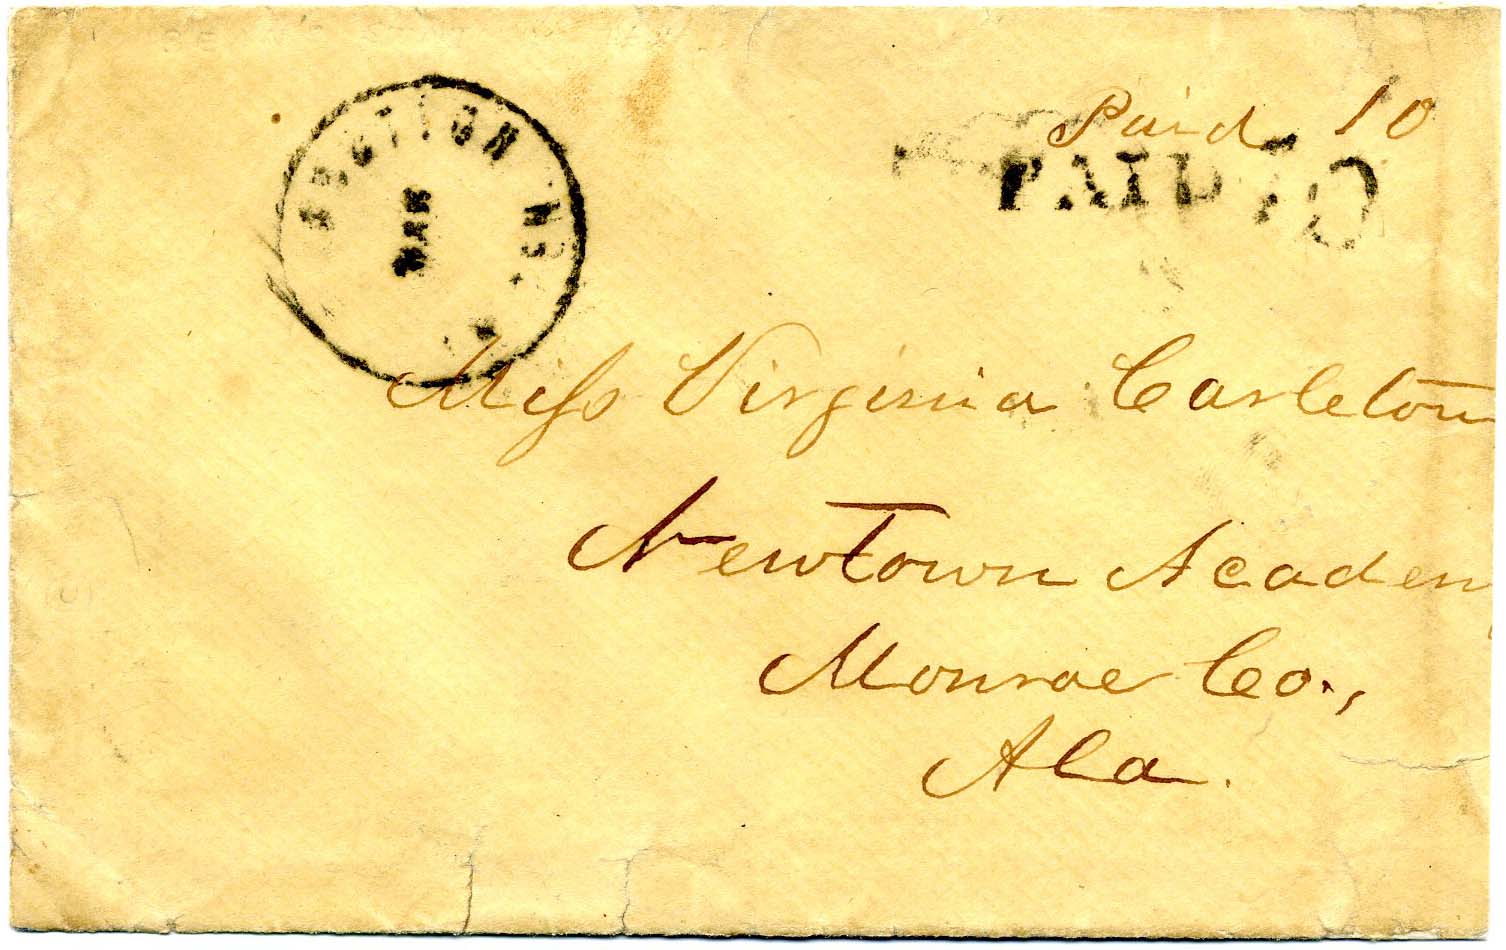 Paid 10
PAID 10
Miss Virginia Carleton
Newtown Academ
Monroe Co.,
Ala.